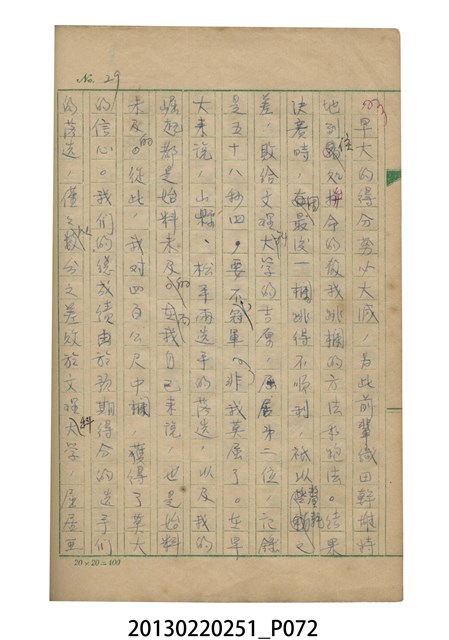 No. 29
早大的得分勢必大減,為此前輩織田幹雄特
地到我住處教我跳欄的方法和跑法。結果
決賽時,因最後一欄跳得不順利,祇以些微之
差,敗給文理科大學的吉原,屈居第二位,記錄
是五十八秒四。要不算單 非我莫屬了。在早
大來說,山縣、松平兩選手的落選,以及我的
崛起都是始料未及的,而在我自己來說,也是始料
未及的。從此,我對四百公尺中欄,獲得了莫大
的信心。我們的總成績由於預期得分的選手們
的落選,僅以 分之差敗於文理科大學,屈居亞
20 x 20 = 400
20130220251_P072